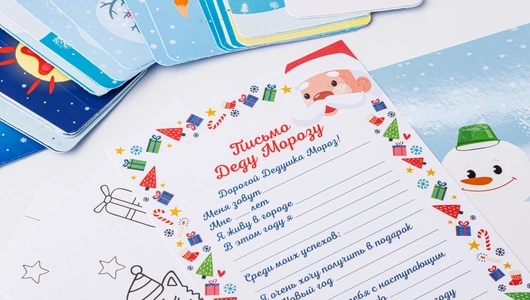 Письмо
Деду Морозу
Дорогой Дедушка Мороз!
Меня зовут
Мне лет
Я живу в городе
В этом году я
Среди моих успехов:
Я очень хочу получить в подарок
Новый год
с наступающим
году